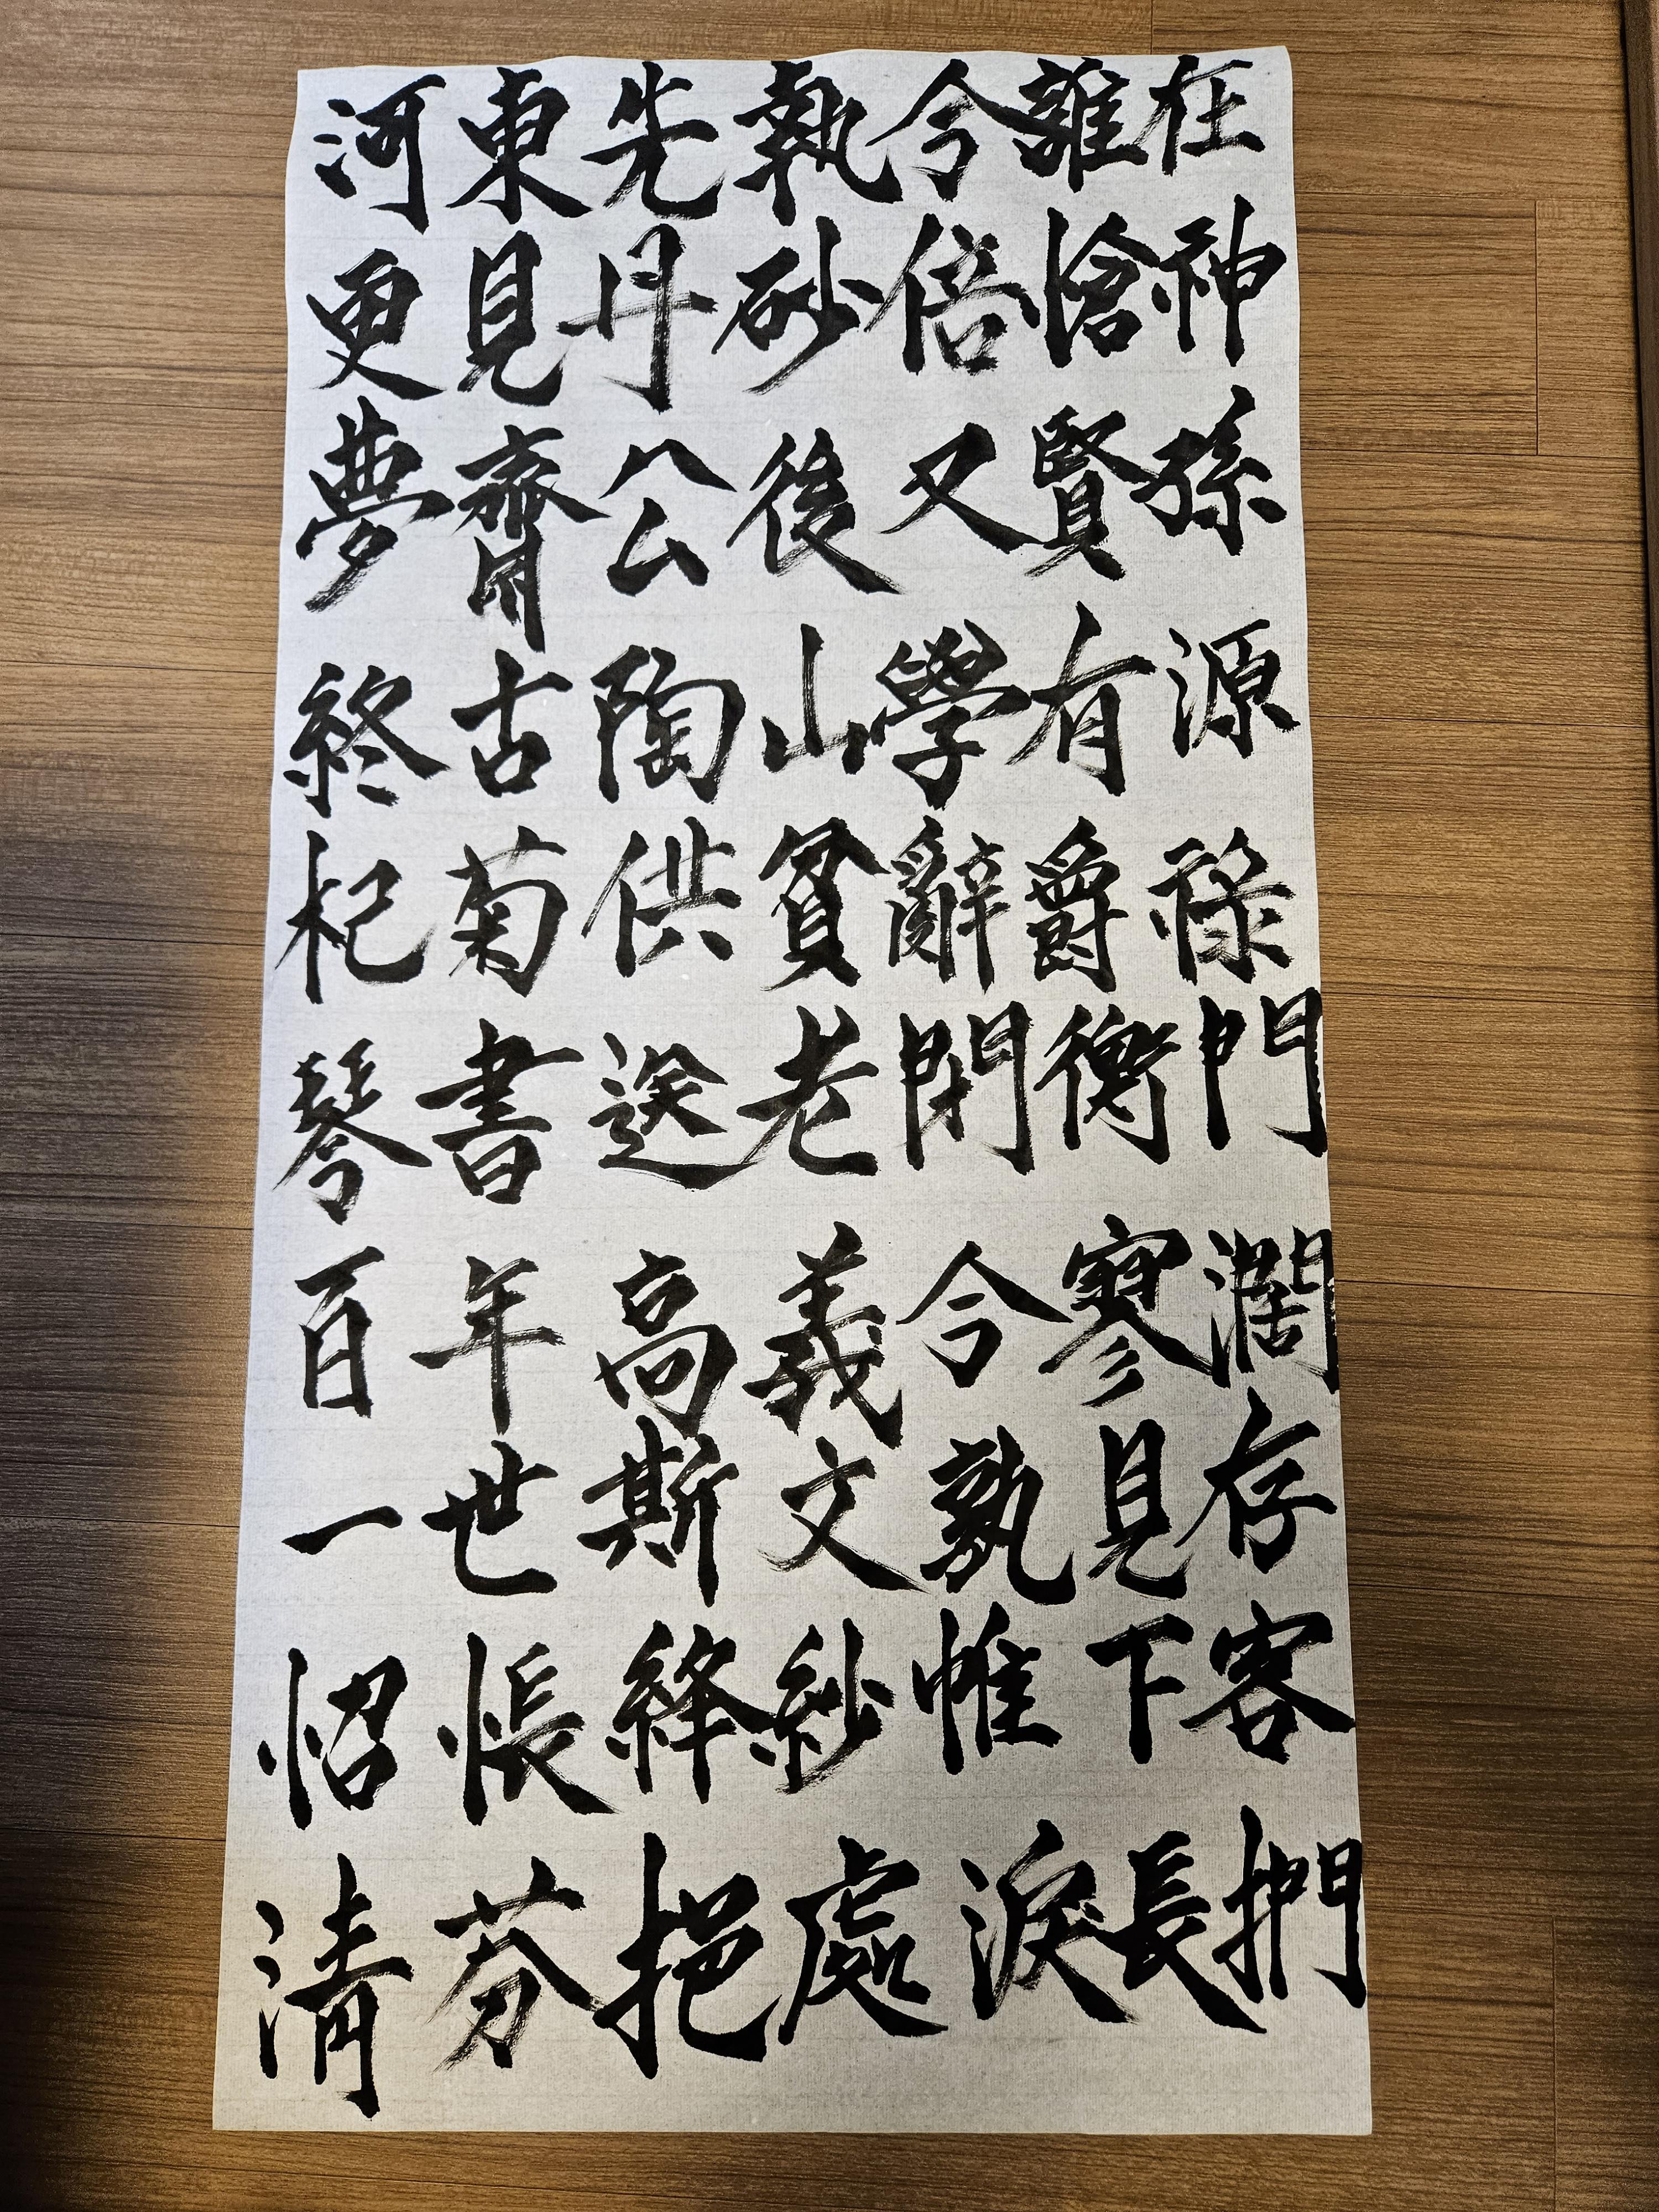 河東先執今誰在
更見丹砂倍愴神
夢齋公後又賢孫
終古陶山學有源
杞菊供貧辭爵祿
琴書送老閉衡門
百年高義今寥濶
一世斯文孰見存
怊悵絳紗帷下客
清芬挹處淚長捫